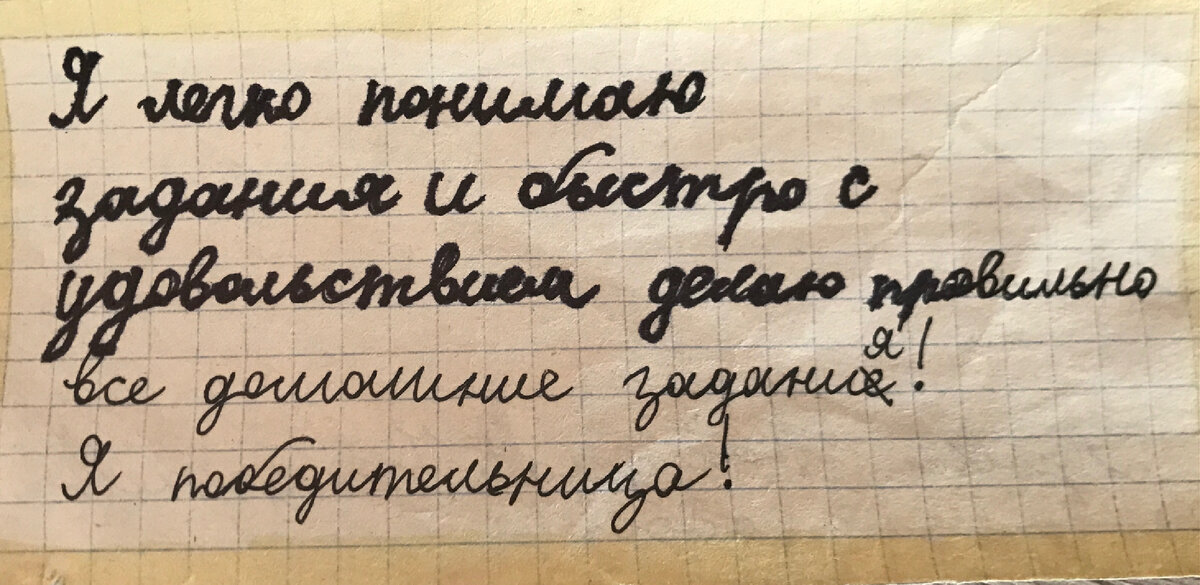 Я легко понимаю
задания и быстро с
удовольствием делаю правильно
все домашние задания!
Я победительница!